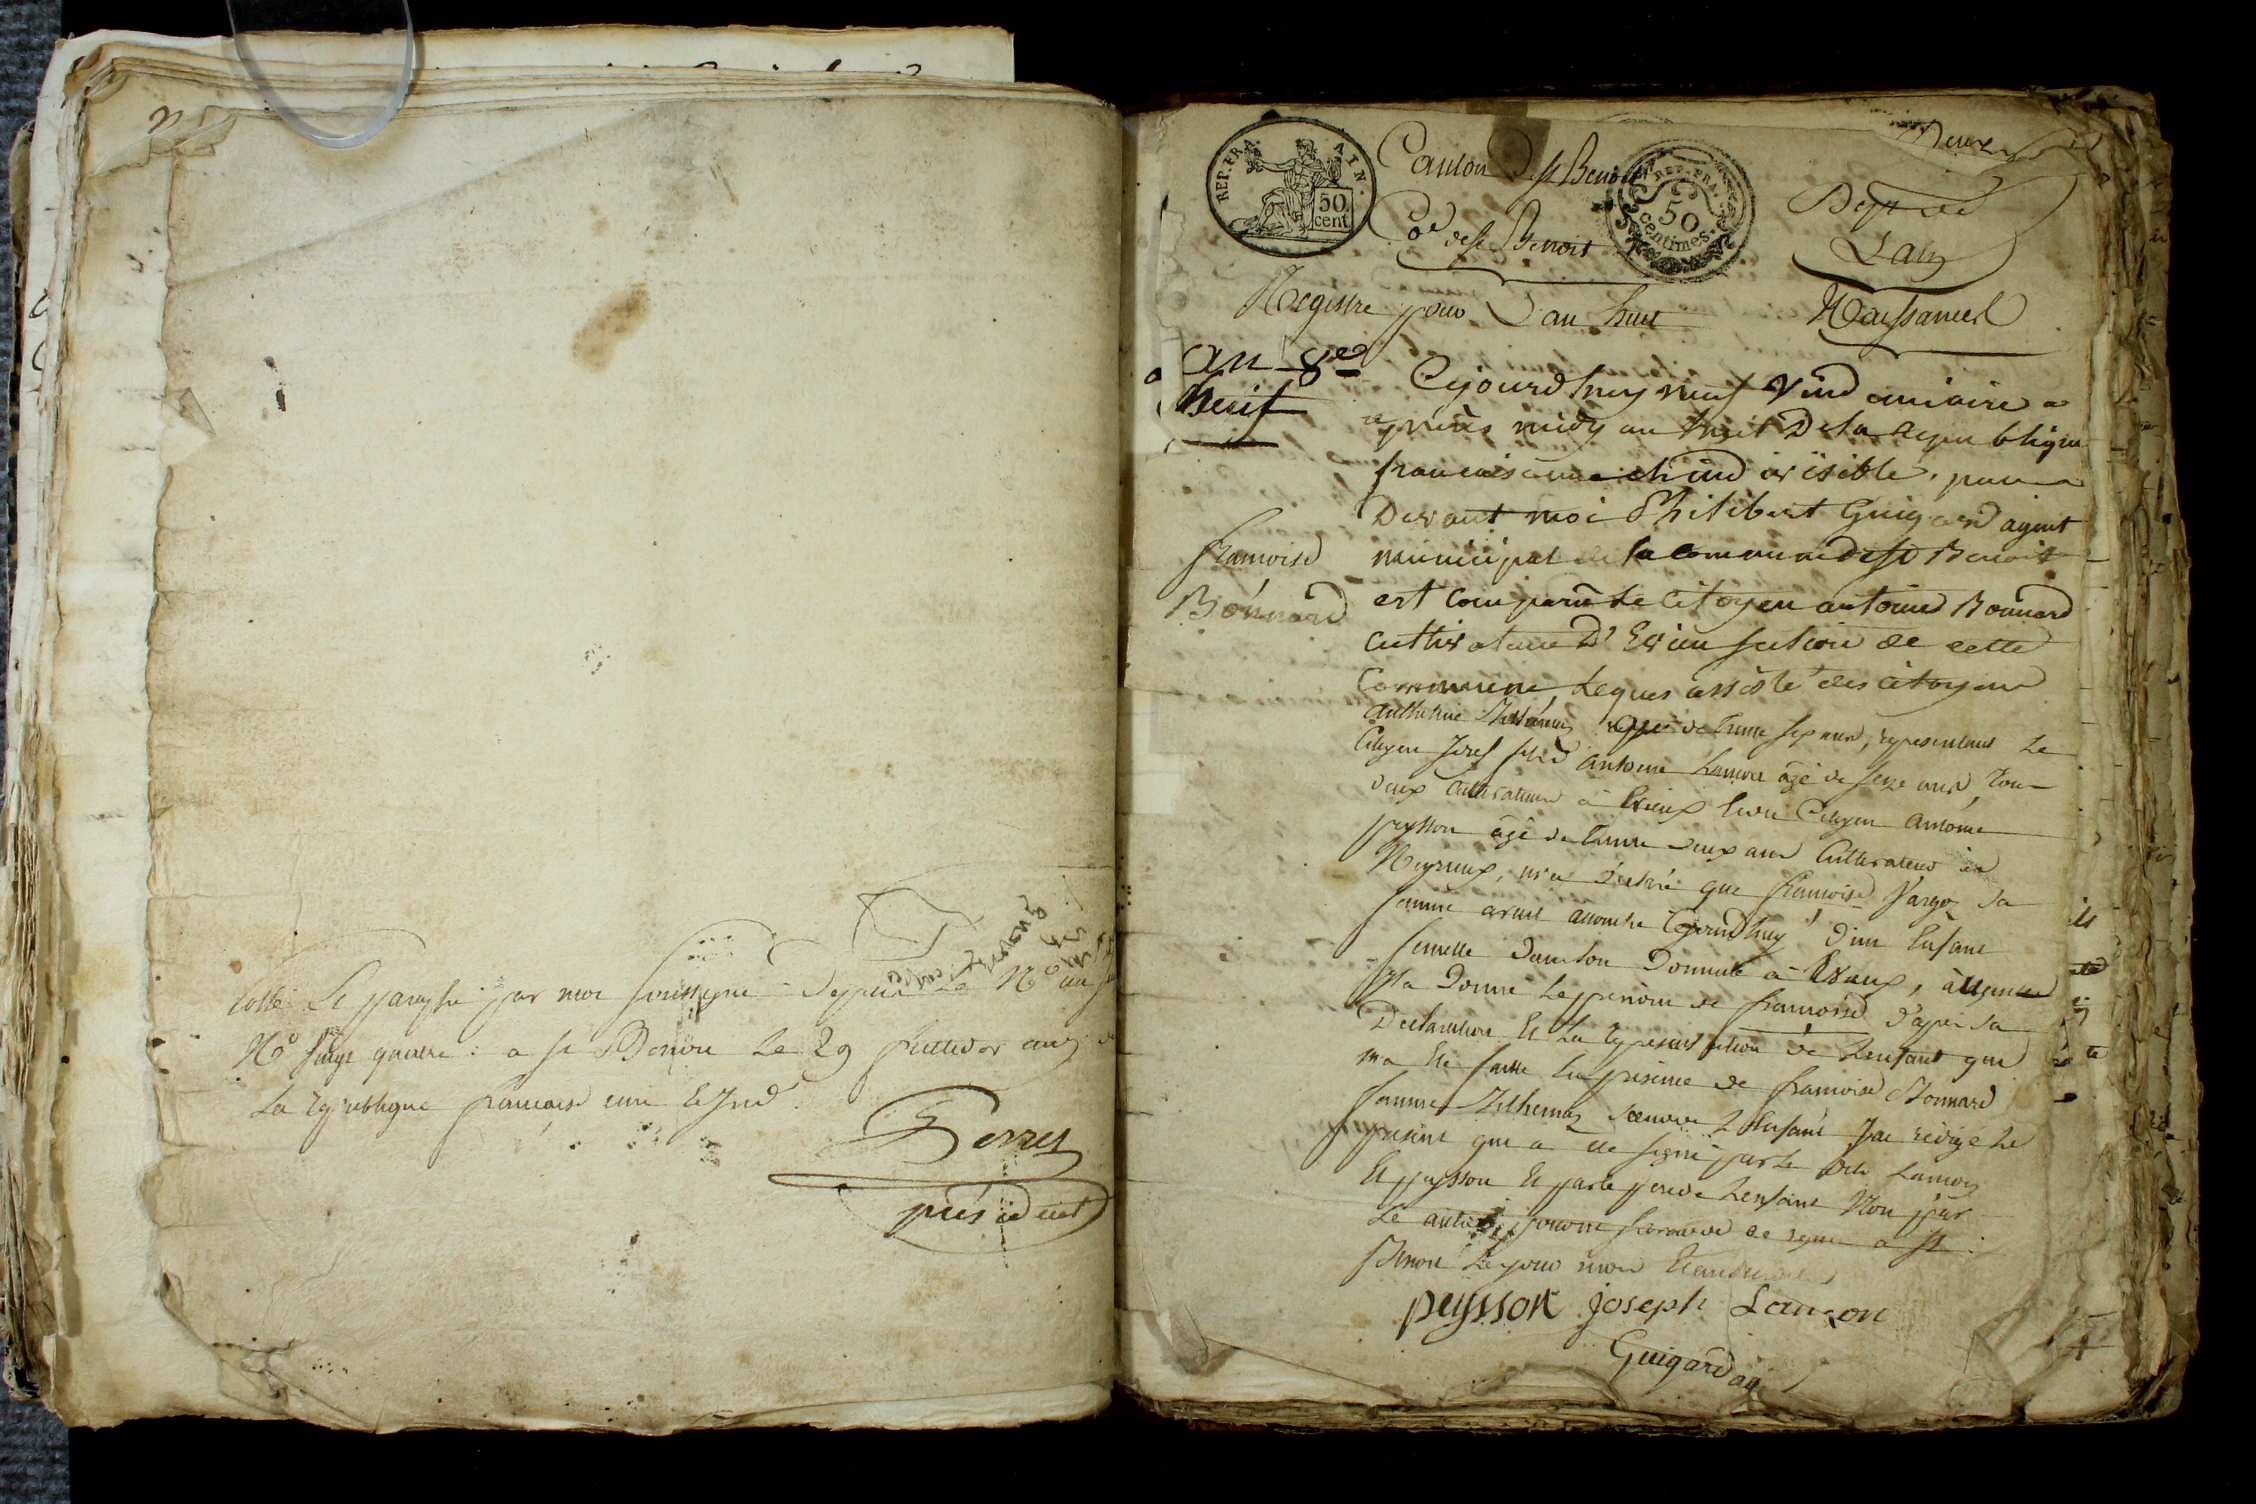 Cotté et paraphé par moi soussigné depuis le No un
No vingt quatre a st Benoit le 29 fructidor an 7 de
La republique francaise une et Ind
Perret
président
REP. FRA. ATN.
50 cent
REP. FRA.
50
centimes
Canton de st Benoit
Cne de st Benoit
Dept de
L'ain
Registre pour L'an huit
Naissances
an 8e
Neuf
francoise
Bonnard
Cejourdhuy neuf Vind emiaire
après midy an huit De la Republique
francaise une et ind ivisible, par
Devant moi Philibert Guigard agent
municipal de la commune de st Benoit
est comparu Le citoyen antoine Bonnard
cultivateur D' Evieu section de cette
Commune, Lequel assisté des citoyens
agé de trente sept ans, representant Le
Citoyen Josef fils d' Antoine Lancon âgé de seze ans, Tous
deux cultivateurs à Evieux Et du Citoyen Antoine
peysson âgé de trente deux ans Cultivateur à
m'a déclaré que francoise sa
femme avait accouché Cejourdhuy d'un Enfant
femelle dans son Domicile à Evieux, auquel
Il a Donné Le prenom de francoise D'après sa
Declaration Et La representation de Lenfant que
m'a été faitte En présence de francoise Bonnard
femme L'Enfant J'ai rédigé Le
présent qui a été signé par Le dit Lancon
Et peysson Et par le pere de Lenfant Non par
de signer a st
Benoit Le jour mois Et an susdits
peysson joseph Lançon
Guigard ag